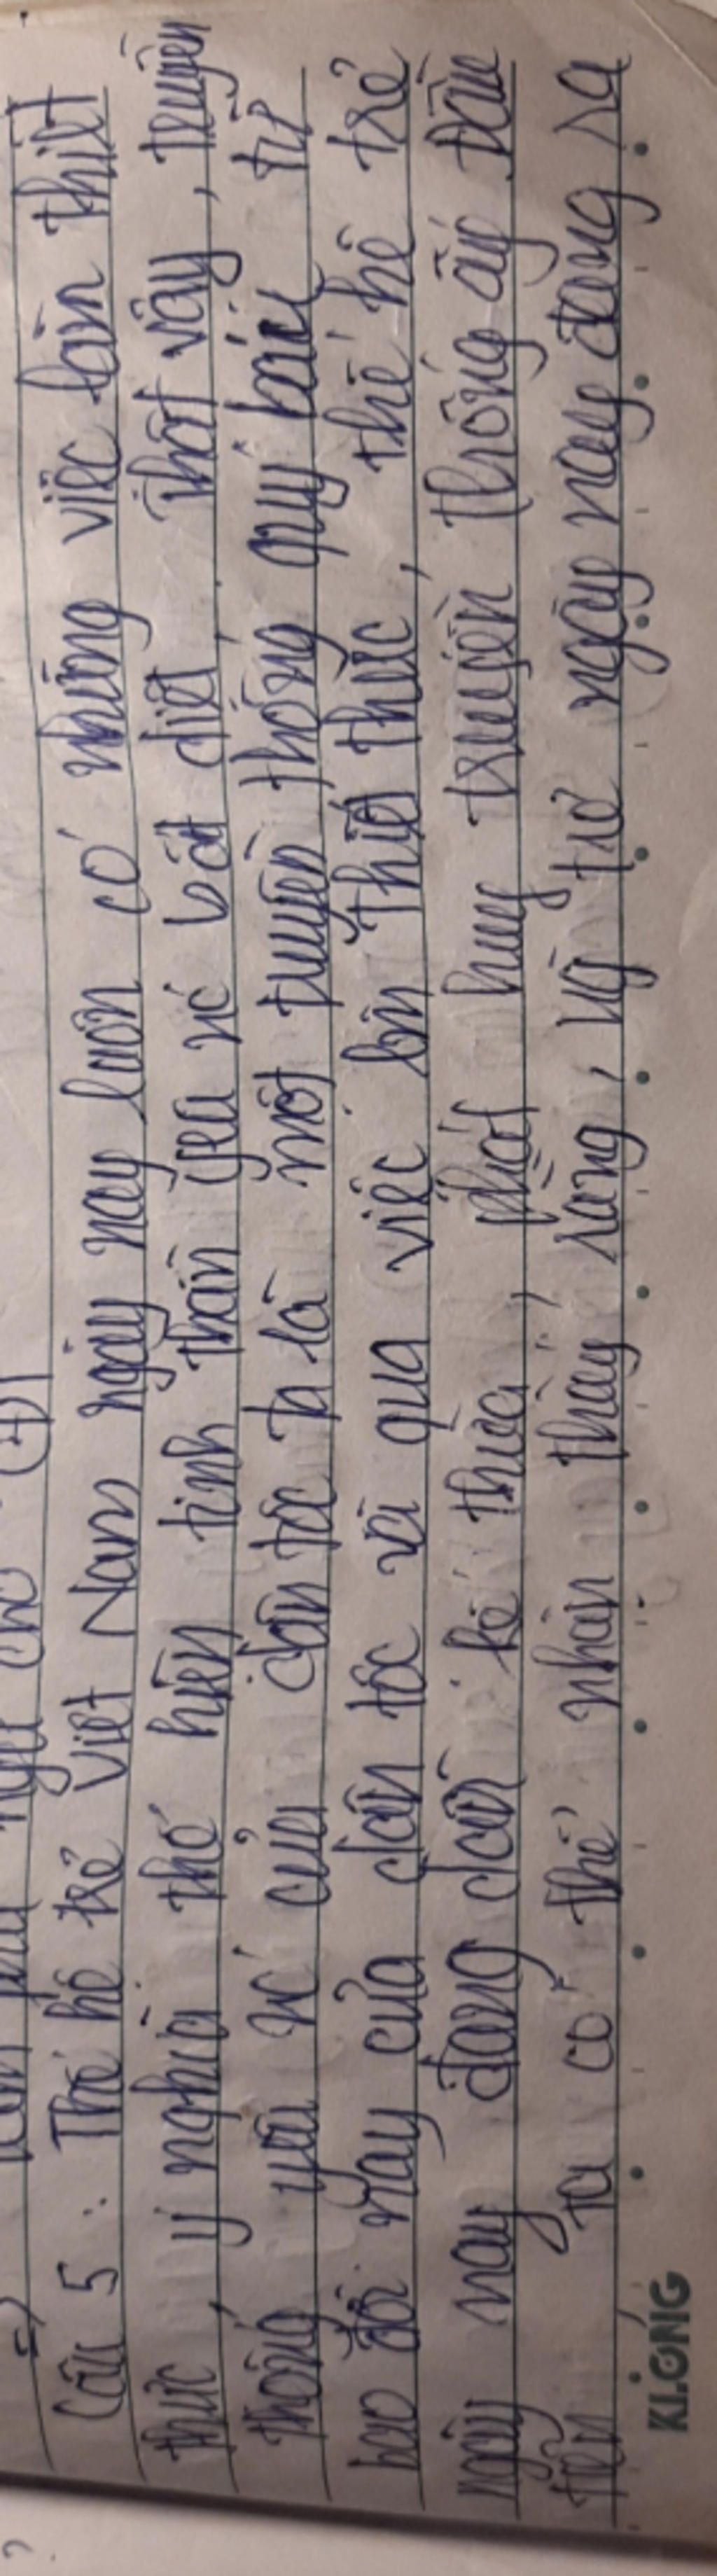 Câu 5 : Thế hệ trẻ Việt Nam ngày nay luôn có những việc làm thiết
thực, ý nghĩa thể hiện tinh thần yêu nc bất diệt. Thật vậy, truyền
thống yêu nc của dân tộc ta là một truyền thống quý báu từ
bao đời nay của dân tộc và qua việc làm thiết thực, thế hệ trẻ
ngày nay đang dần kế thừa, phát huy truyền thống ấy. Đầu
tiên ta có thể nhận thấy rằng, trẻ ngày nay đang ra
KLONG